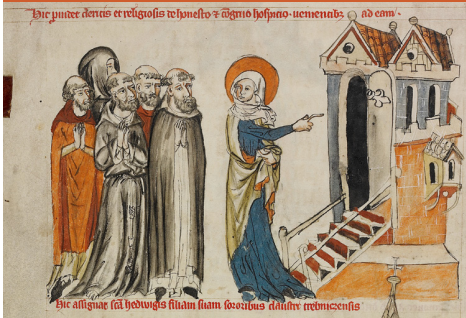 Hic prouidet clericis et religiosis de honesto ⁊ co͞grno hospicio · uenientibꝫ ad eam ·
Hic assignat sc͞a hedwigis filiam suam sororibus claustri trebnicensis